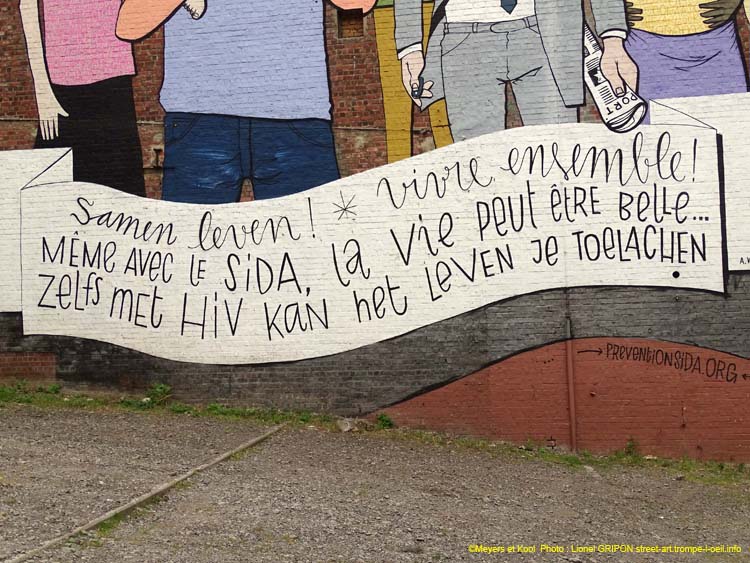 PORT
samen leven! * vivre ensemble!
MÊME AVEC LE SiDA, la Vie PEUT ÊTRE BELLE...
ZELFS MET HiV KAN het LEVEN JE TOELACHEN
A.V
→ PREVENTIONSiDA.ORG ←
©Meyers et Kool Photo : Lionel GRIPON street-art.trompe-l-oeil.info